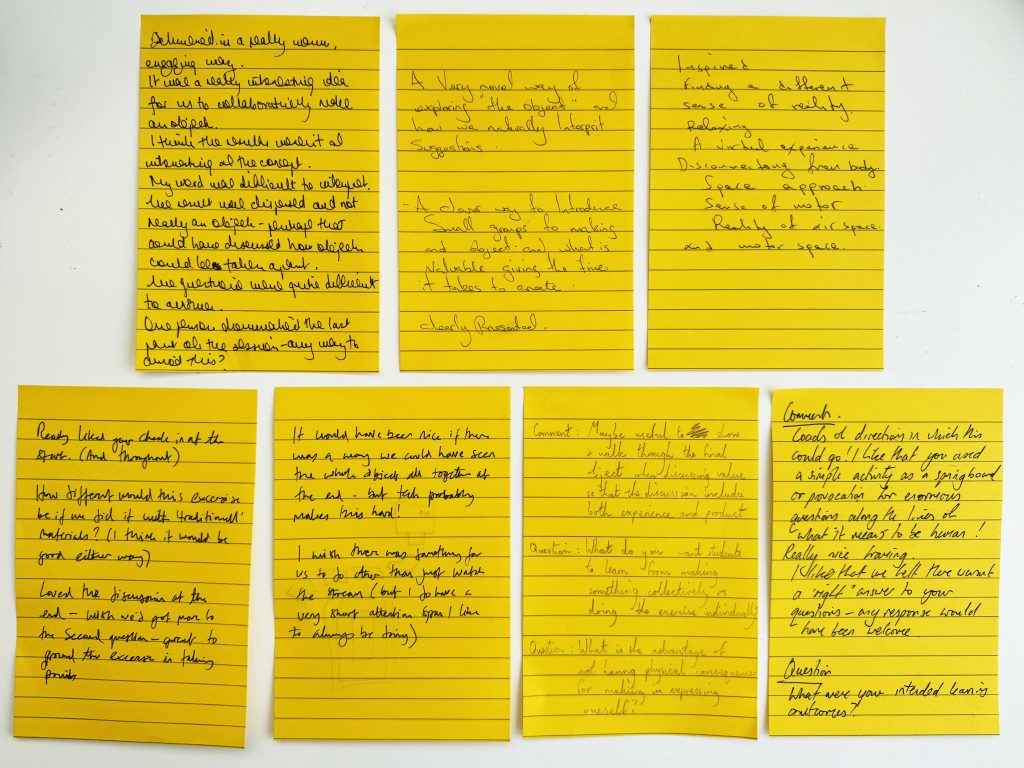 Delivered in a really warm,
engaging way.
It was a really interesting idea
for us to collaboratively make
an object.
I think the results weren't as
interesting as the concept.
My word was difficult to interpret.
The result was dispersed and not
really an object - perhaps that
could have discussed how objects
could be taken apart.
The questions were quite difficult
to answer.
One person dominated the last
part of the session - any way to
avoid this?
A Very novel way of
exploring "the object" and
how we naturally Interprit
Suggestions.
- A clear way to Introduce
Small groups to making
and object and what is
Valuable giving the time
it takes to create.
Clearly Presented.
Inspired
Finding a different
sense of reility
Relaxing
A virtual experience
Disconnecting from body
Space approach
Sense of motor
Reality of air space
and motor space.
Really liked your check in at the
start. (And throughout)
How different would this excercise
be if we did it with 'traditional'
materials? (I think it would be
good either way)
Loved the discussion at the
end - wish we'd got more to
the second question - great to
ground the excercise in talking
points
It would have been nice if there
was a way we could have seen
the whole object all together at
the end - but tech probably
makes this hard!
I wish there was something for
us to do other than just watch
the stream (but I do have a
very short attention span I like
to always be doing)
Comment: Maybe useful to show
+ walk through the final
object when discussing value
so that the discussion includes
both experience and product
Question: What do you want students
to learn from making
something collectively vs
doing the exercise individually
Question: What is the advantage of
not having physical consequences
for making in expressing
oneself?
Comments.
Loads of directions in which this
could go! I like that you used
a simple activity as a springboard
or provocation for enormous
questions along the lines of
what it means to be human!
Really nice framing.
I like that we felt there wasn't
a 'right' answer to your
questions - any response would
have been welcome.
Question
What were your intended learning
outcomes?